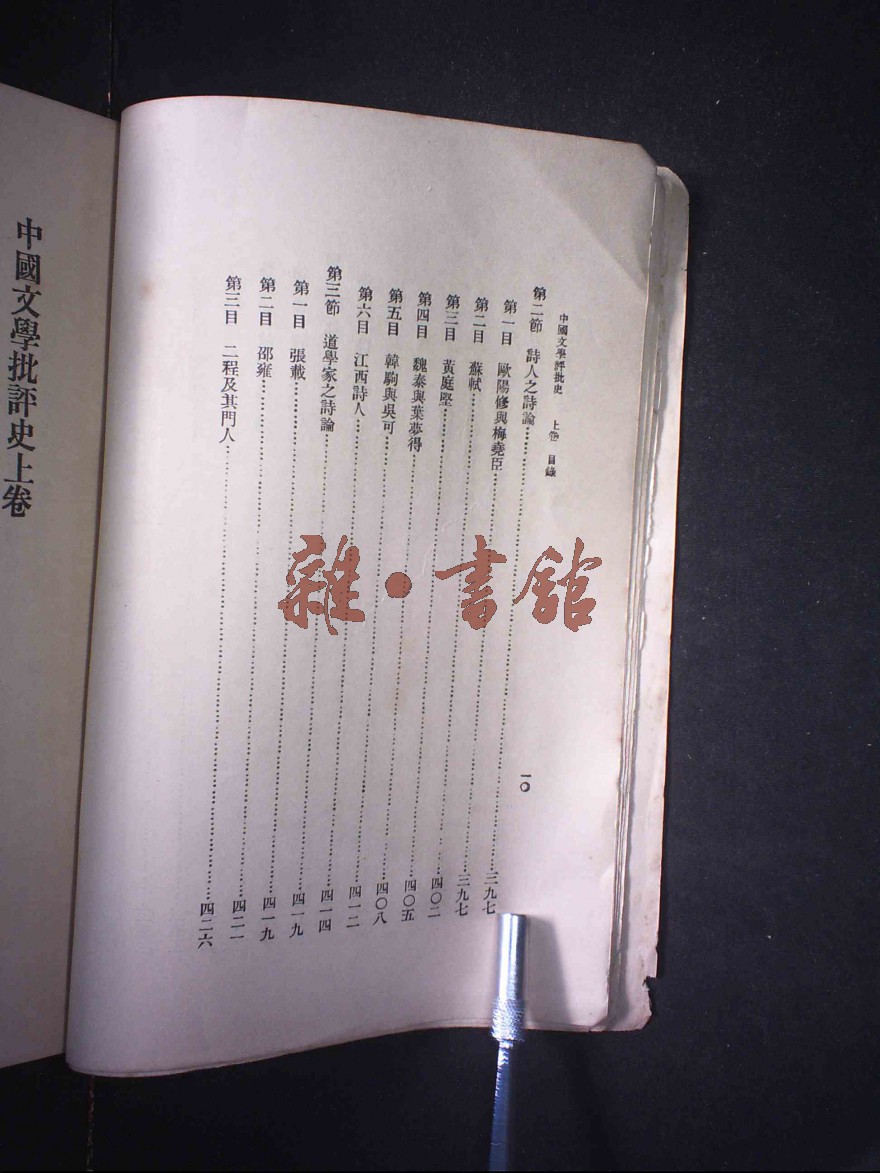 中國文學評批史 上卷 目錄
一〇
第二節 詩人之詩論……三九七
第一目 歐陽修與梅堯臣……三九七
第二目 蘇軾……四〇二
第三目 黃庭堅……四〇五
第四目 魏泰與葉夢得……四〇八
第五目 韓駒與吳可……四一二
第六目 江西詩人……四一四
第三節 道學家之詩論……四一九
第一目 張載……四一九
第二目 邵雍……四二一
第三目 二程及其門人……四二六
中國文學批評史上卷
雜·書館